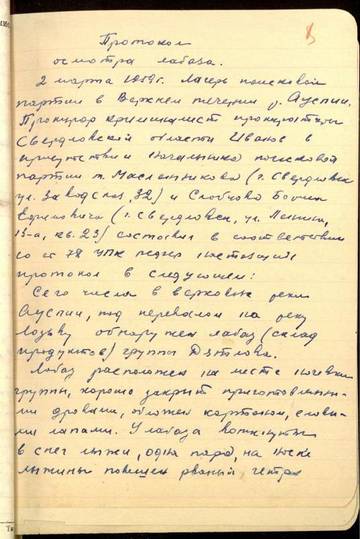 Протокол
осмотра лабаза.
2 марта 1959г. Лагерь поисковой
партии в верхнем течении р. Ауспии.
Прокурор криминалист прокуратуры
Свердловской области Иванов в
присутствии начальника поисковой
партии т. Масленникова (г. Свердловск
ул. Заводская, 32) и Слобцова Бориса
Ефимовича (г. Свердловск, ул. Ленина,
13-а, кв. 23) составил в соответствии
со ст 78 УПК РСФСР настоящий
протокол в следующем:
Сего числа в верховье реки
Ауспии, под перевалом на реку
Лозьву обнаружен лабаз (склад
продуктов) группы Дятлова.
Лабаз расположен на месте ночевки
группы, хорошо закрыт приготовленны-
ми дровами, обложен картоном, елови-
ми лапами. У лабаза воткнуты
в снег лыжи, одна пара, на носке
лыжины повешен рваный гетра